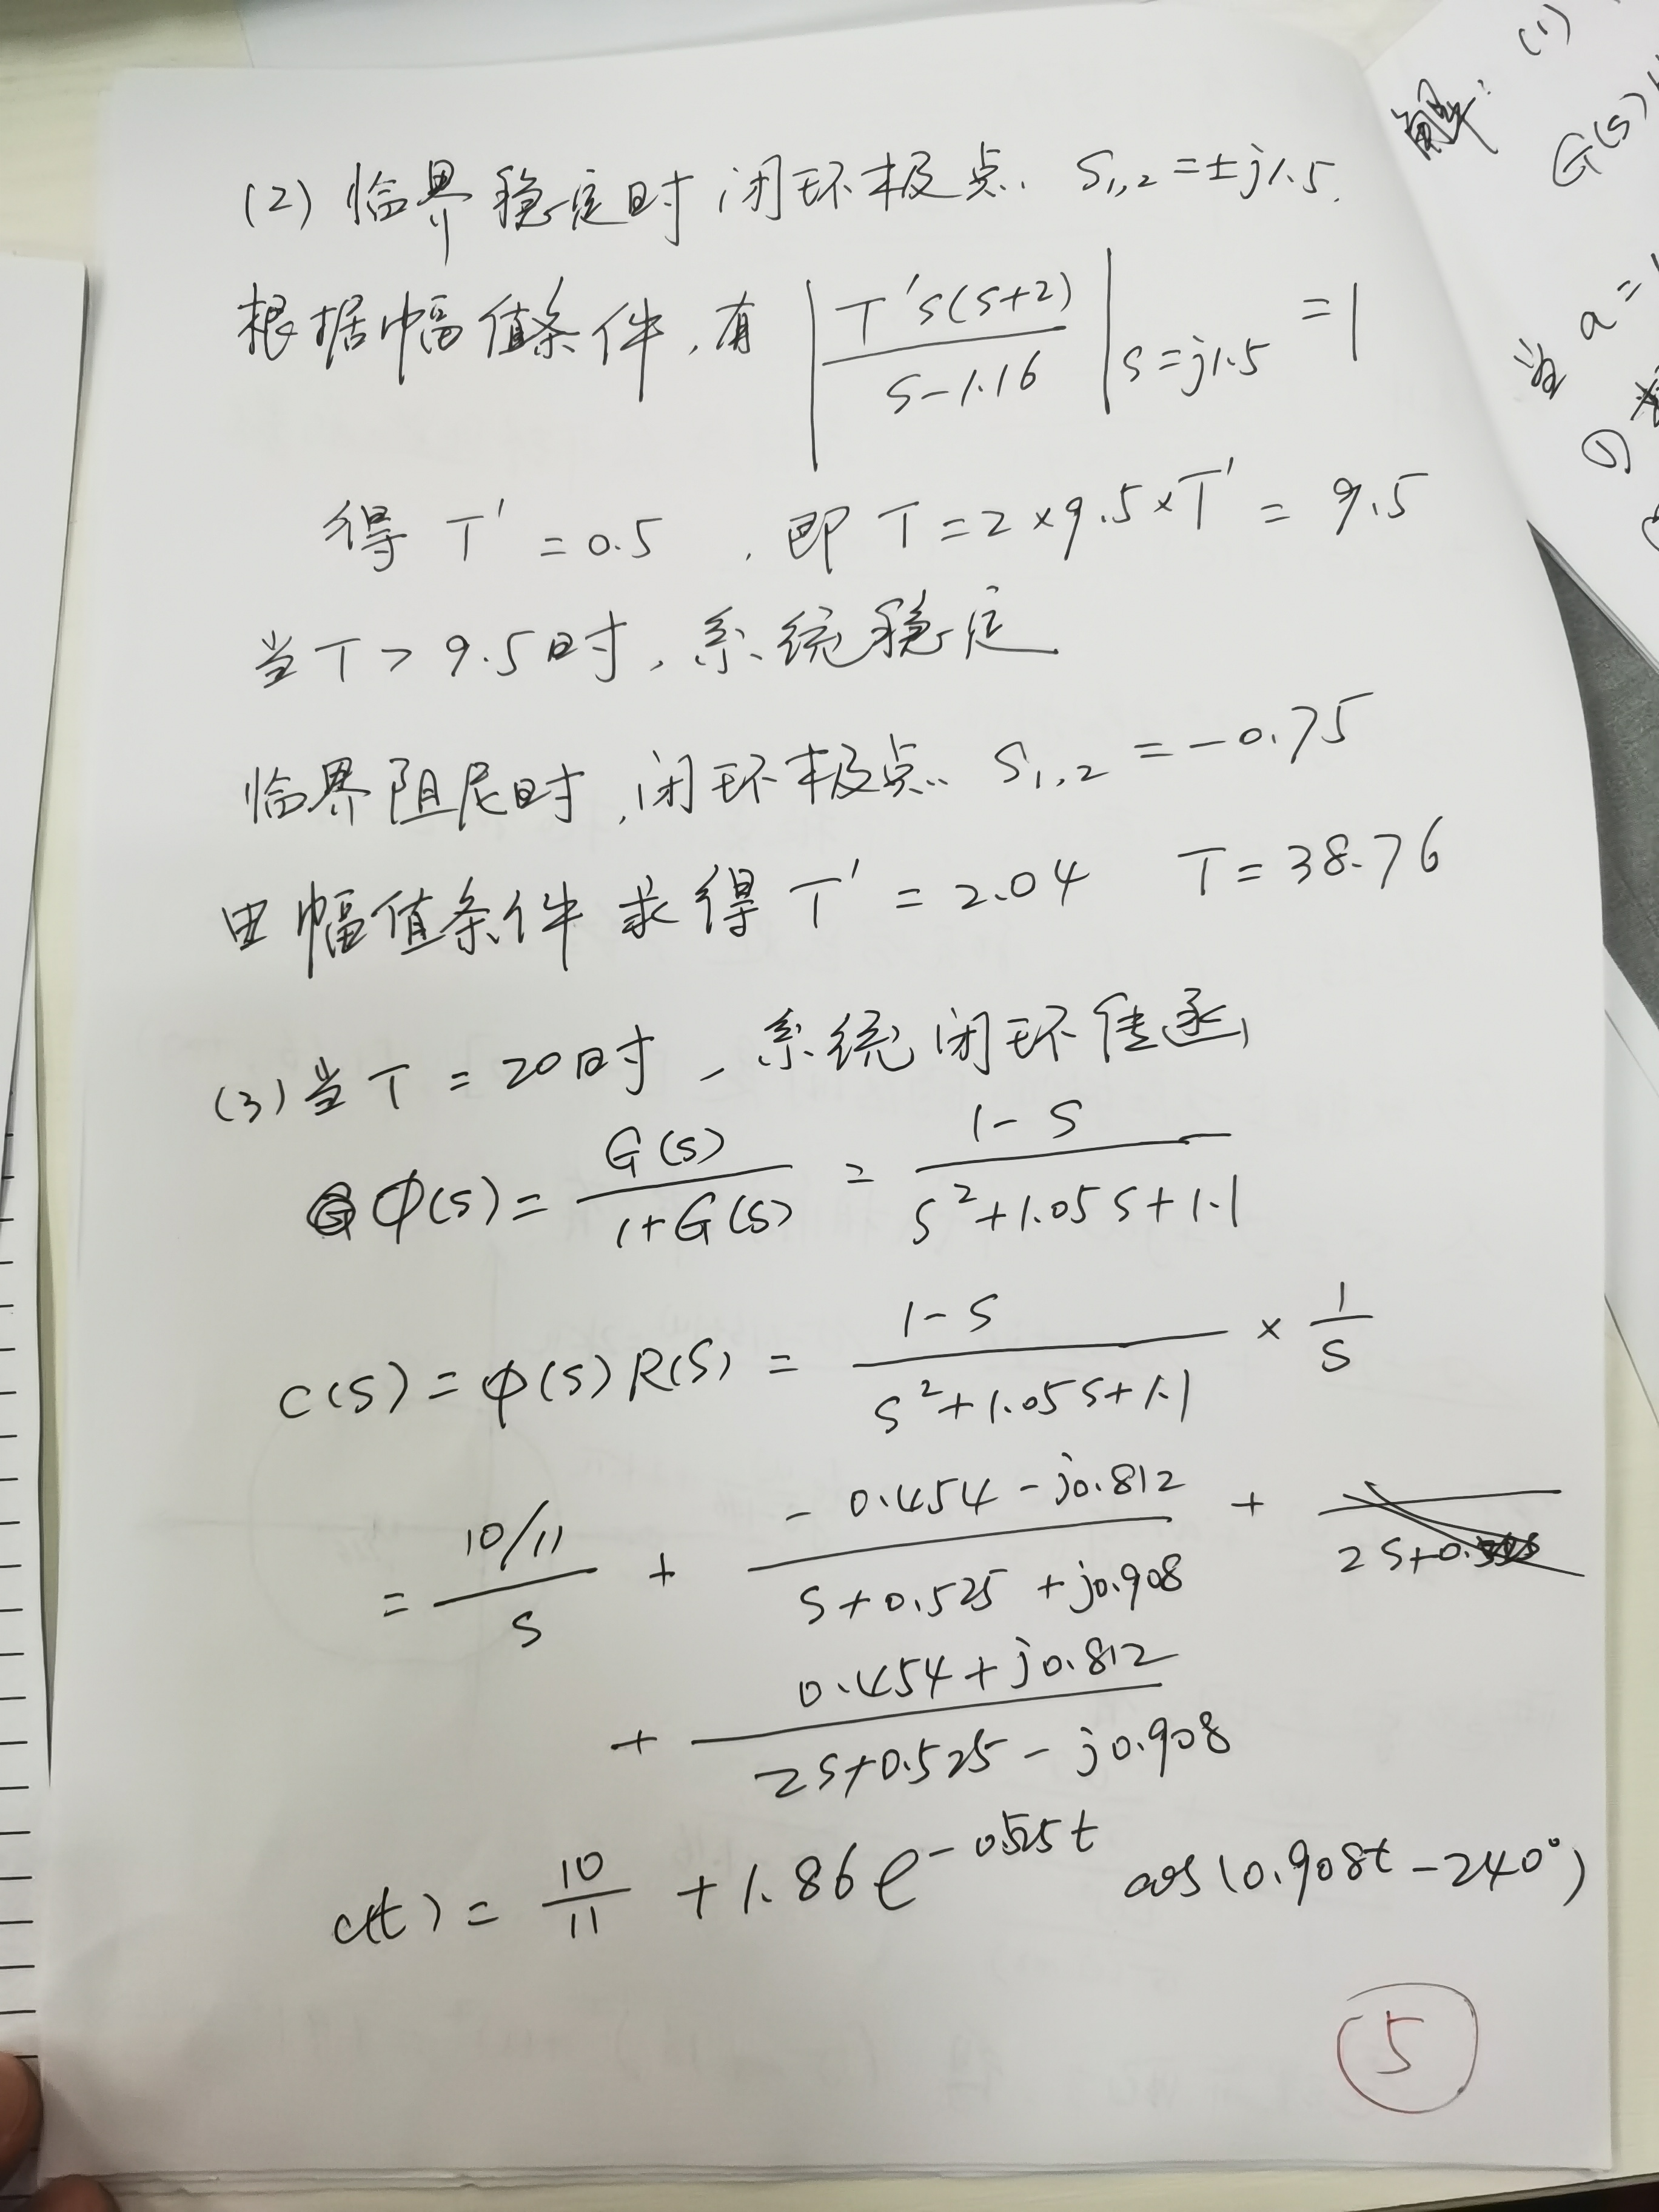 (2) 临界稳定时闭环极点. S₁,₂ = ±j1.5.
根据幅值条件,有 |T's(s+2) / (s-1.16)| s=j1.5 = 1
得 T' = 0.5 , 即 T = 2×9.5×T' = 9.5
当 T > 9.5时, 系统稳定
临界阻尼时,闭环极点. S₁,₂ = -0.75
由幅值条件求得 T' = 2.04 T = 38.76
(3) 当 T = 20时, 系统闭环传函
Φ(s) = G(s) / (1+G(s)) = (1-s) / (s²+1.05s+1.1)
C(s) = Φ(s)R(s) = (1-s) / (s²+1.05s+1.1) × 1/s
= (10/11)/s + (-0.454-j0.812) / (s+0.525+j0.908) +
+ (0.454+j0.812) / (2s+0.525-j0.908)
c(t) = 10/11 + 1.86e^(-0.525t) cos(0.908t-240°)
5
解: (1)
G(s)
当 a =
①